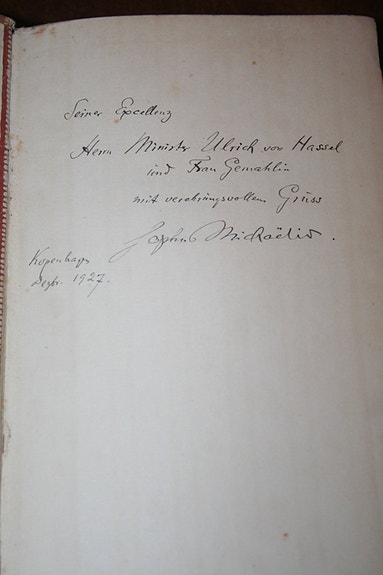 Seiner Excellenz
Herrn Minister Ulrich von Hassel
und Frau Gemahlin
mit verehrungsvollem Gruss
Sophus Michaëlis.
Kopenhagen
Dezbr. 1927.